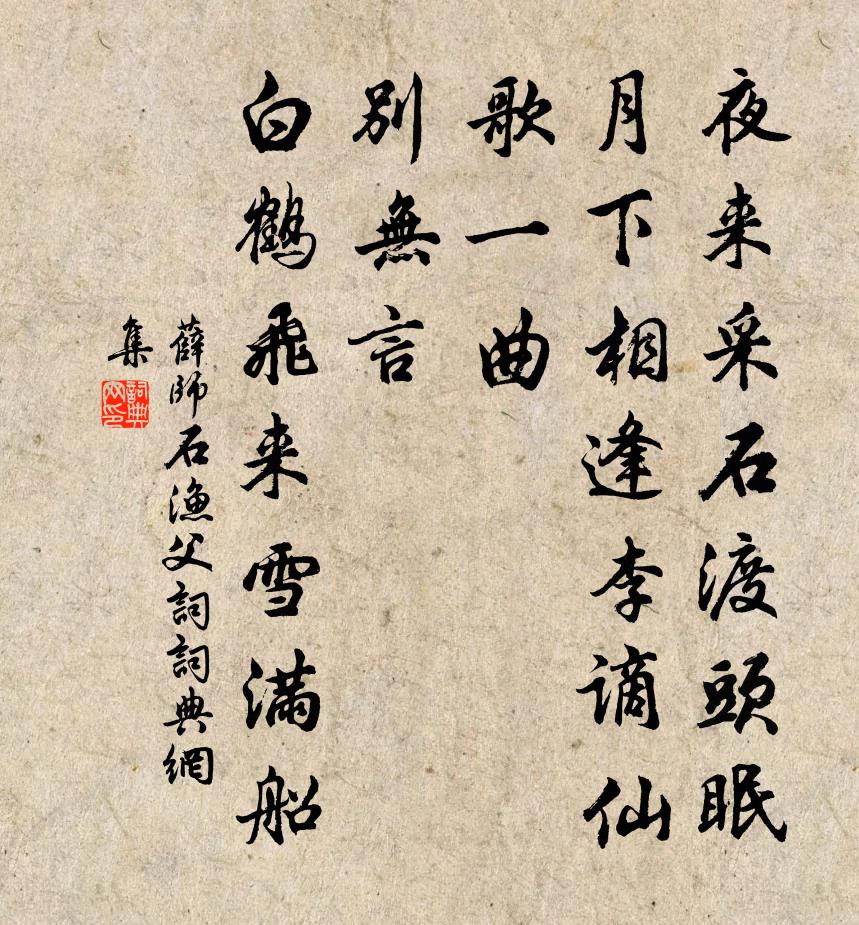 夜来采石渡頭眠
月下相逢李謫仙
歌一曲
別無言
白鶴飛来雪满船
薛師石漁父詞詞典網
集
詞典
网印